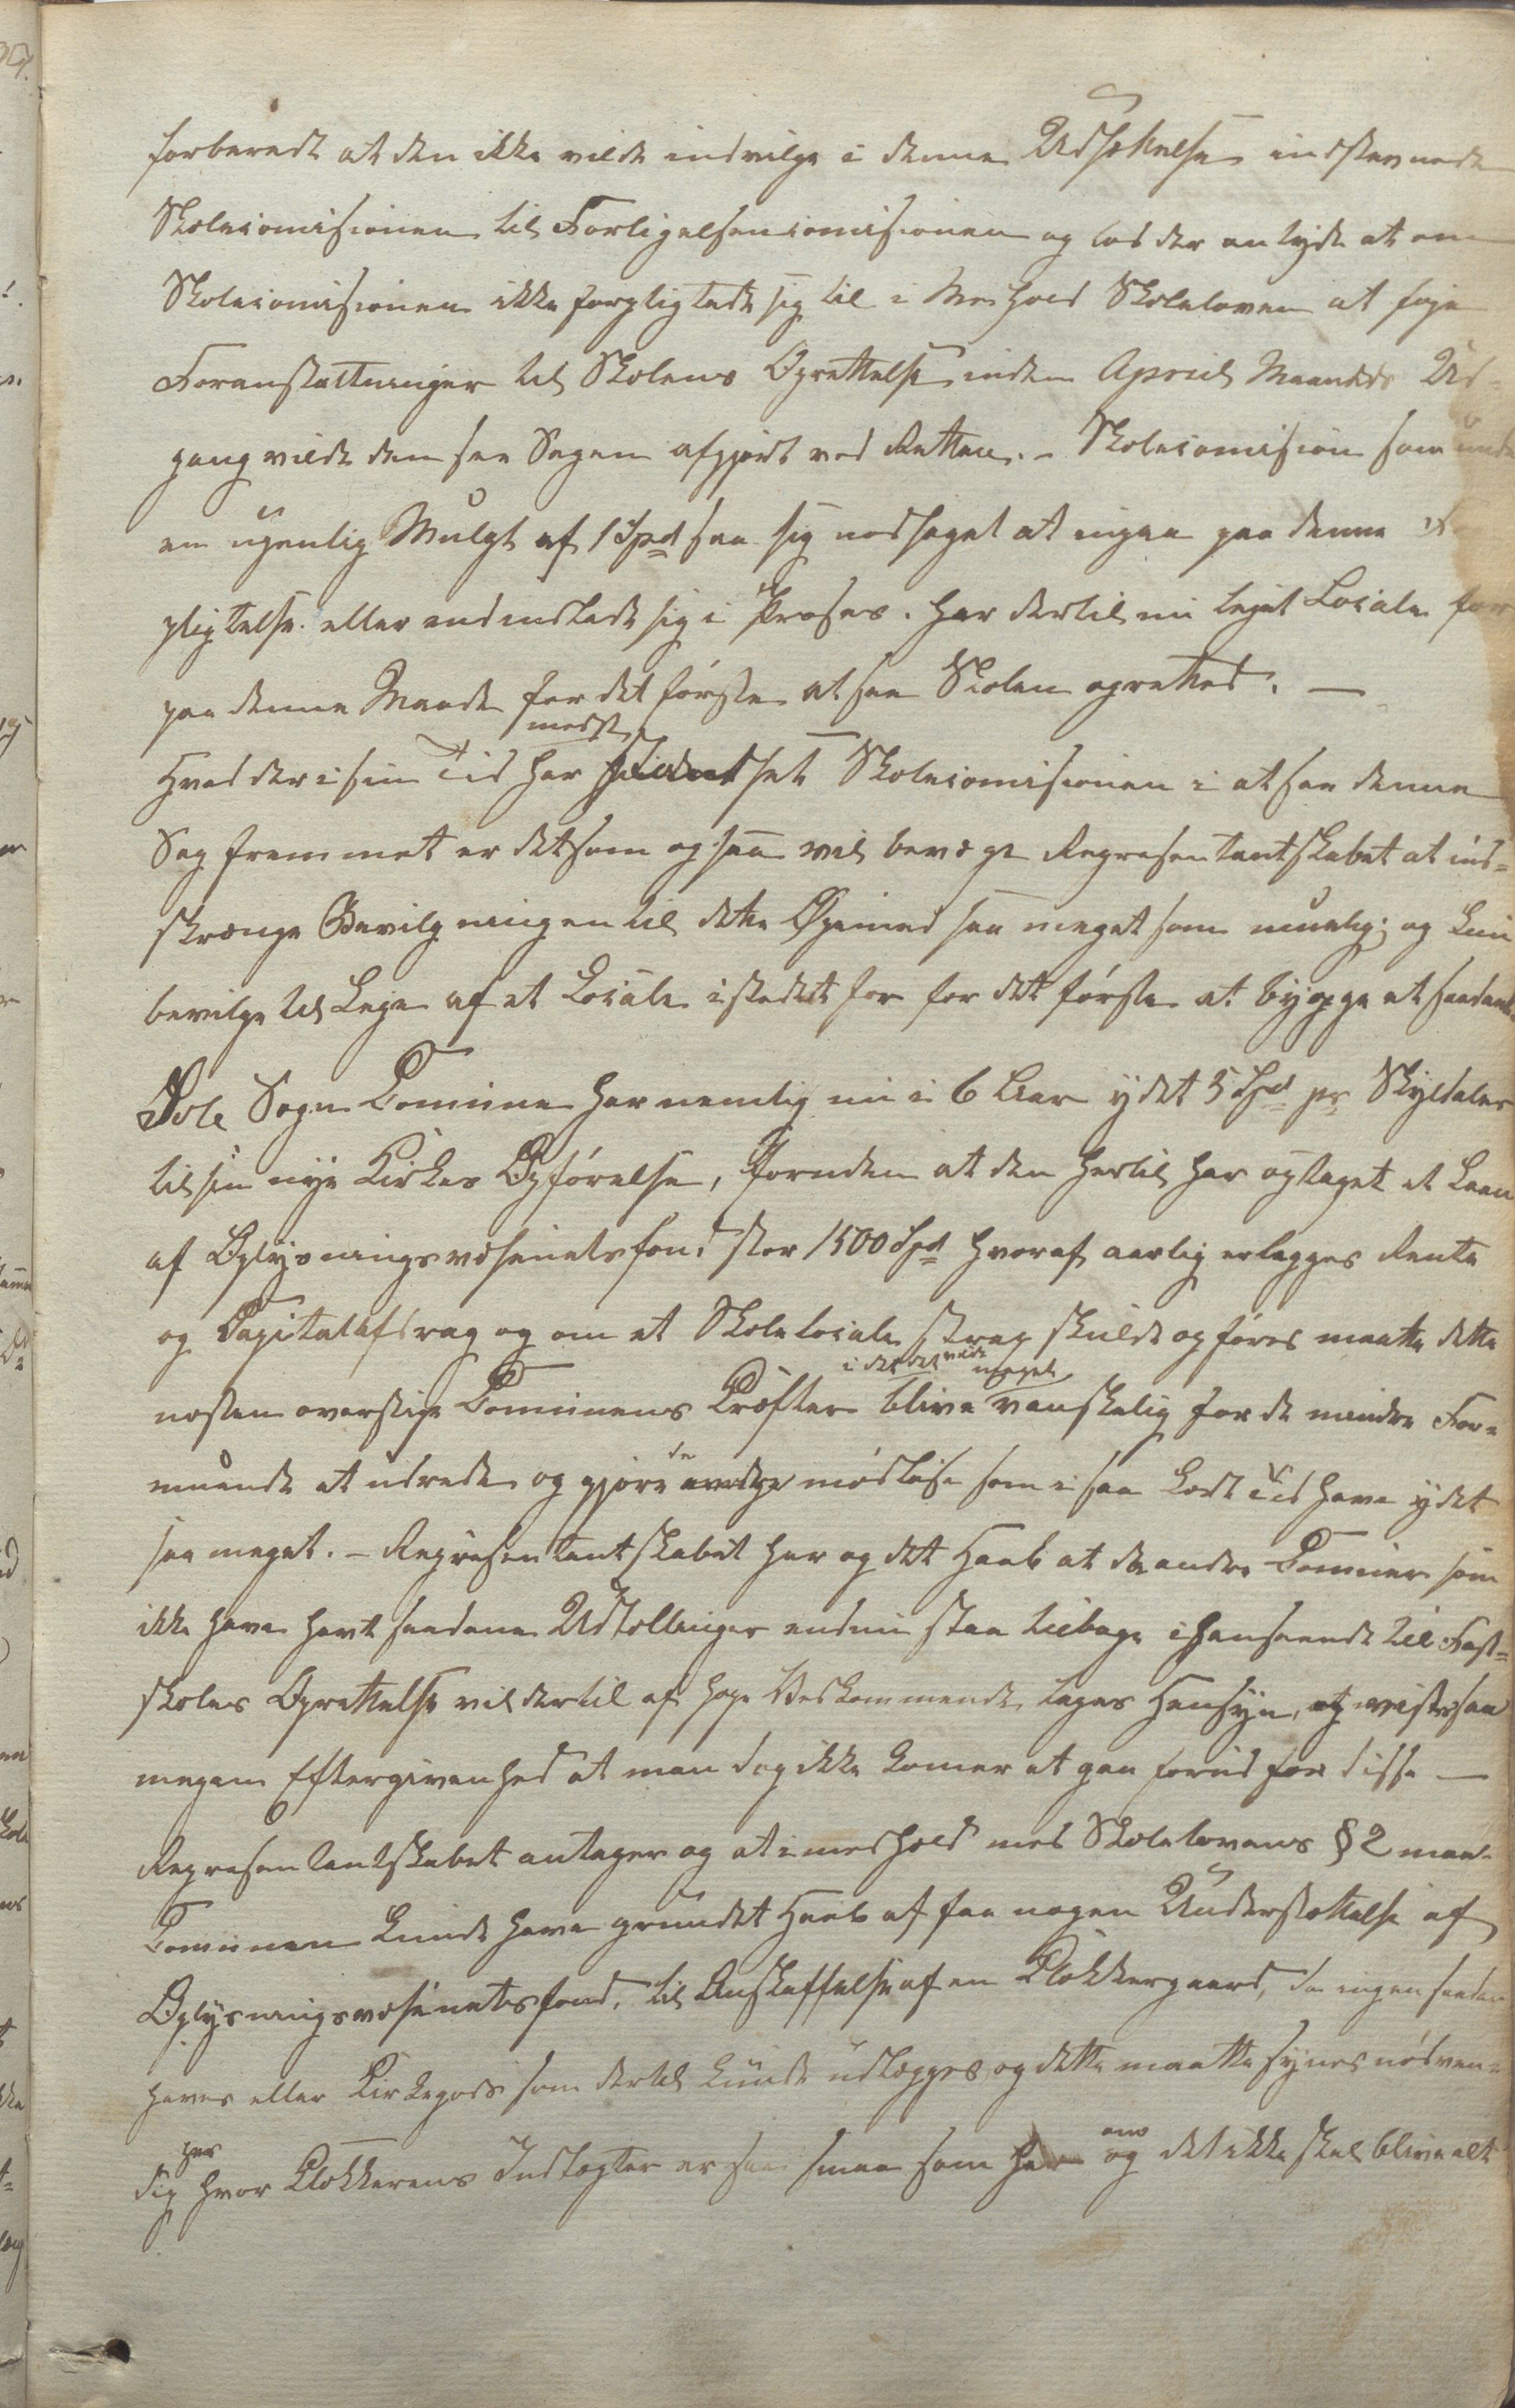 forberedt at den ikke vilde indvilge i denne Udsættelse indstevnede
Skolecomisionen til Forligelsescomisionen og lod der antyde at om
Skolecomisionen ikke forpligtede sig til i Medhold Skoleloven at føje
Foranstaltninger til Skolens Oprettelse inden April Maaneds Ud-
gang vilde den see Sagen afgjort ved Retten. - Skolecomision som under
en ugentlig Mulgt af 1 Spd saa sig nødsaget at ingaa paa denne
pligtelse eller indlade sig i Proses. har dertil nu lejet Locale for
paa denne Maade for det første at faa Skolen oprettet. —
Hvad der i sin Tid har modsat Skolecomisionen i at faa denne
Sag fremmet er det som ogsaa vil bevæge Representantskabet at ind-
skrænge Bevilgningen til dette Øiemed saa meget som muelig; og kun
bevilge til Leje af et Locale istedet for for det første at bygge et saadant
Sole Sogn Comune har nemlig nu i 6 Aar ydet 5 Spd pr Skyldaler
til sin nye Kirkes Opførelse, foruden at den hertil har optaget et Laan
af Oplysningsvæsenets fond stor 1500 Spd hvoraf aarlig erlægges Rente
og Capitalafdrag og om et Skolelocale strax skulde opføres maatte dette
næsten overstige Comunens Kræfter i det det vilde blive meget vanskelig for de mindre For-
muende at udrede og gjøre de modløse som i saa kort Tid have ydet
saa meget. - Representantskabet har og det Haab at da andre Comuner som
ikke have havt saadane Udtællinger endnu staa tilbage i Henseende til Fast-
skoles Oprettelse vil dertil af høje Vedkommende tages Hensyn, og vises saa
megen Eftergivenhed at man dog ikke komer at gaa forud for disse —
Representantskabet antager og at i medhold med Skolelovens § 2 maa
Comunen kunde have grundet Haab af faa nogen Understøttelse af
Oplysningsvæsenets fond, til Anskaffelse af en Klokkergaard, da ingen saadan
haves eller Kirkegods som dertil kunde udlægges, og dette maatte synes nødven-
dig her hvor Klokkerens Indtægter er saa smaa som og det ikke skal blive alt